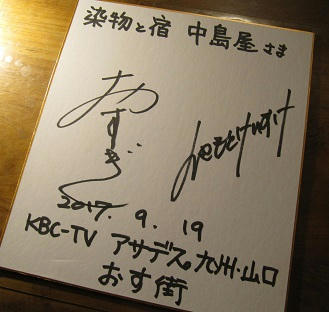 染物と宿 中島屋さま
おすぎ
2017. 9. 19
KBC-TV アサデス。九州・山口
おす街